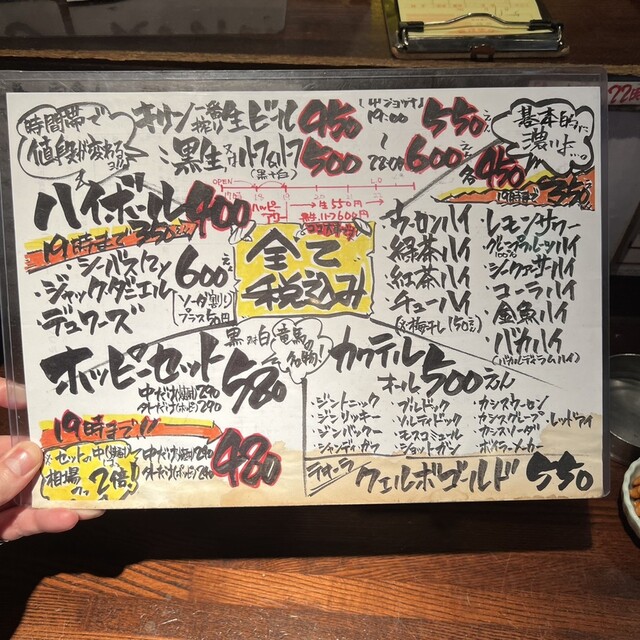 時間帯で
値段が変わる
キリン一番搾り生ビール 450
19:00
550
黒生 又は ハーフ&ハーフ 500
(黒+白)
22:00
600
基本的に
濃いよ…
各450
19時まで350
OPEN
L.O
ハッピーアワー
生550円
600円
ハイボール 400
19時まで350
・シーバスリーガル
・ジャックダニエル
・デュワーズ
600
ソーダ割り
プラス50円
全て
税込み
ウーロンハイ
緑茶ハイ
紅茶ハイ
チューハイ
(※梅干し150)
レモンサワー
グレープフルーツハイ
100%
シークァーサーハイ
コーラハイ
・金魚ハイ
・バカハイ
黒又は白
竜馬の名物!
ホッピーセット 580
中だけ(焼酎)290
外だけ(ホッピー)290
19時まで!!
※セットの中(焼酎)
相場の2倍!
中だけ(焼酎)240
外だけ(ホッピー)240
480
カクテル
オール500えん
・ジントニック
・ジンリッキー
・ジンバック
・シャンディガフ
・ブルドック
・ソルティドック
・モスコミュール
・ショットガン
・カシスウーロン
・カシスグレープ
・カシスソーダ
・ボイラーメーカー
・レッドアイ
テキーラ
クエルボゴールド 550
22